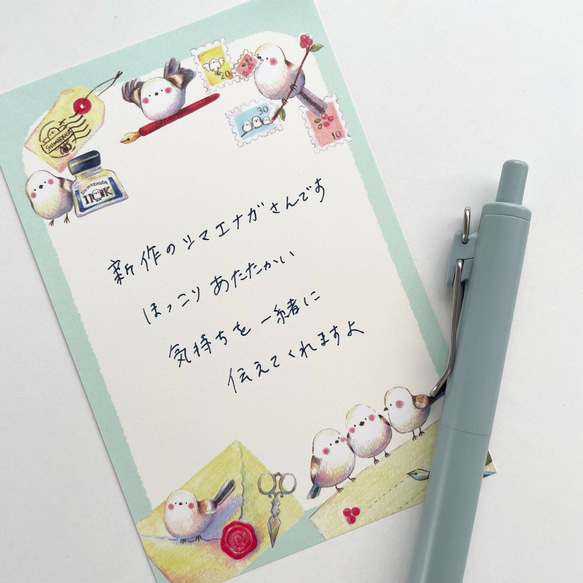 20
30
10
INK
新作のシマエナガさんです
ほっこり あたたかい
気持ちを 一緒に
伝えてくれますよ